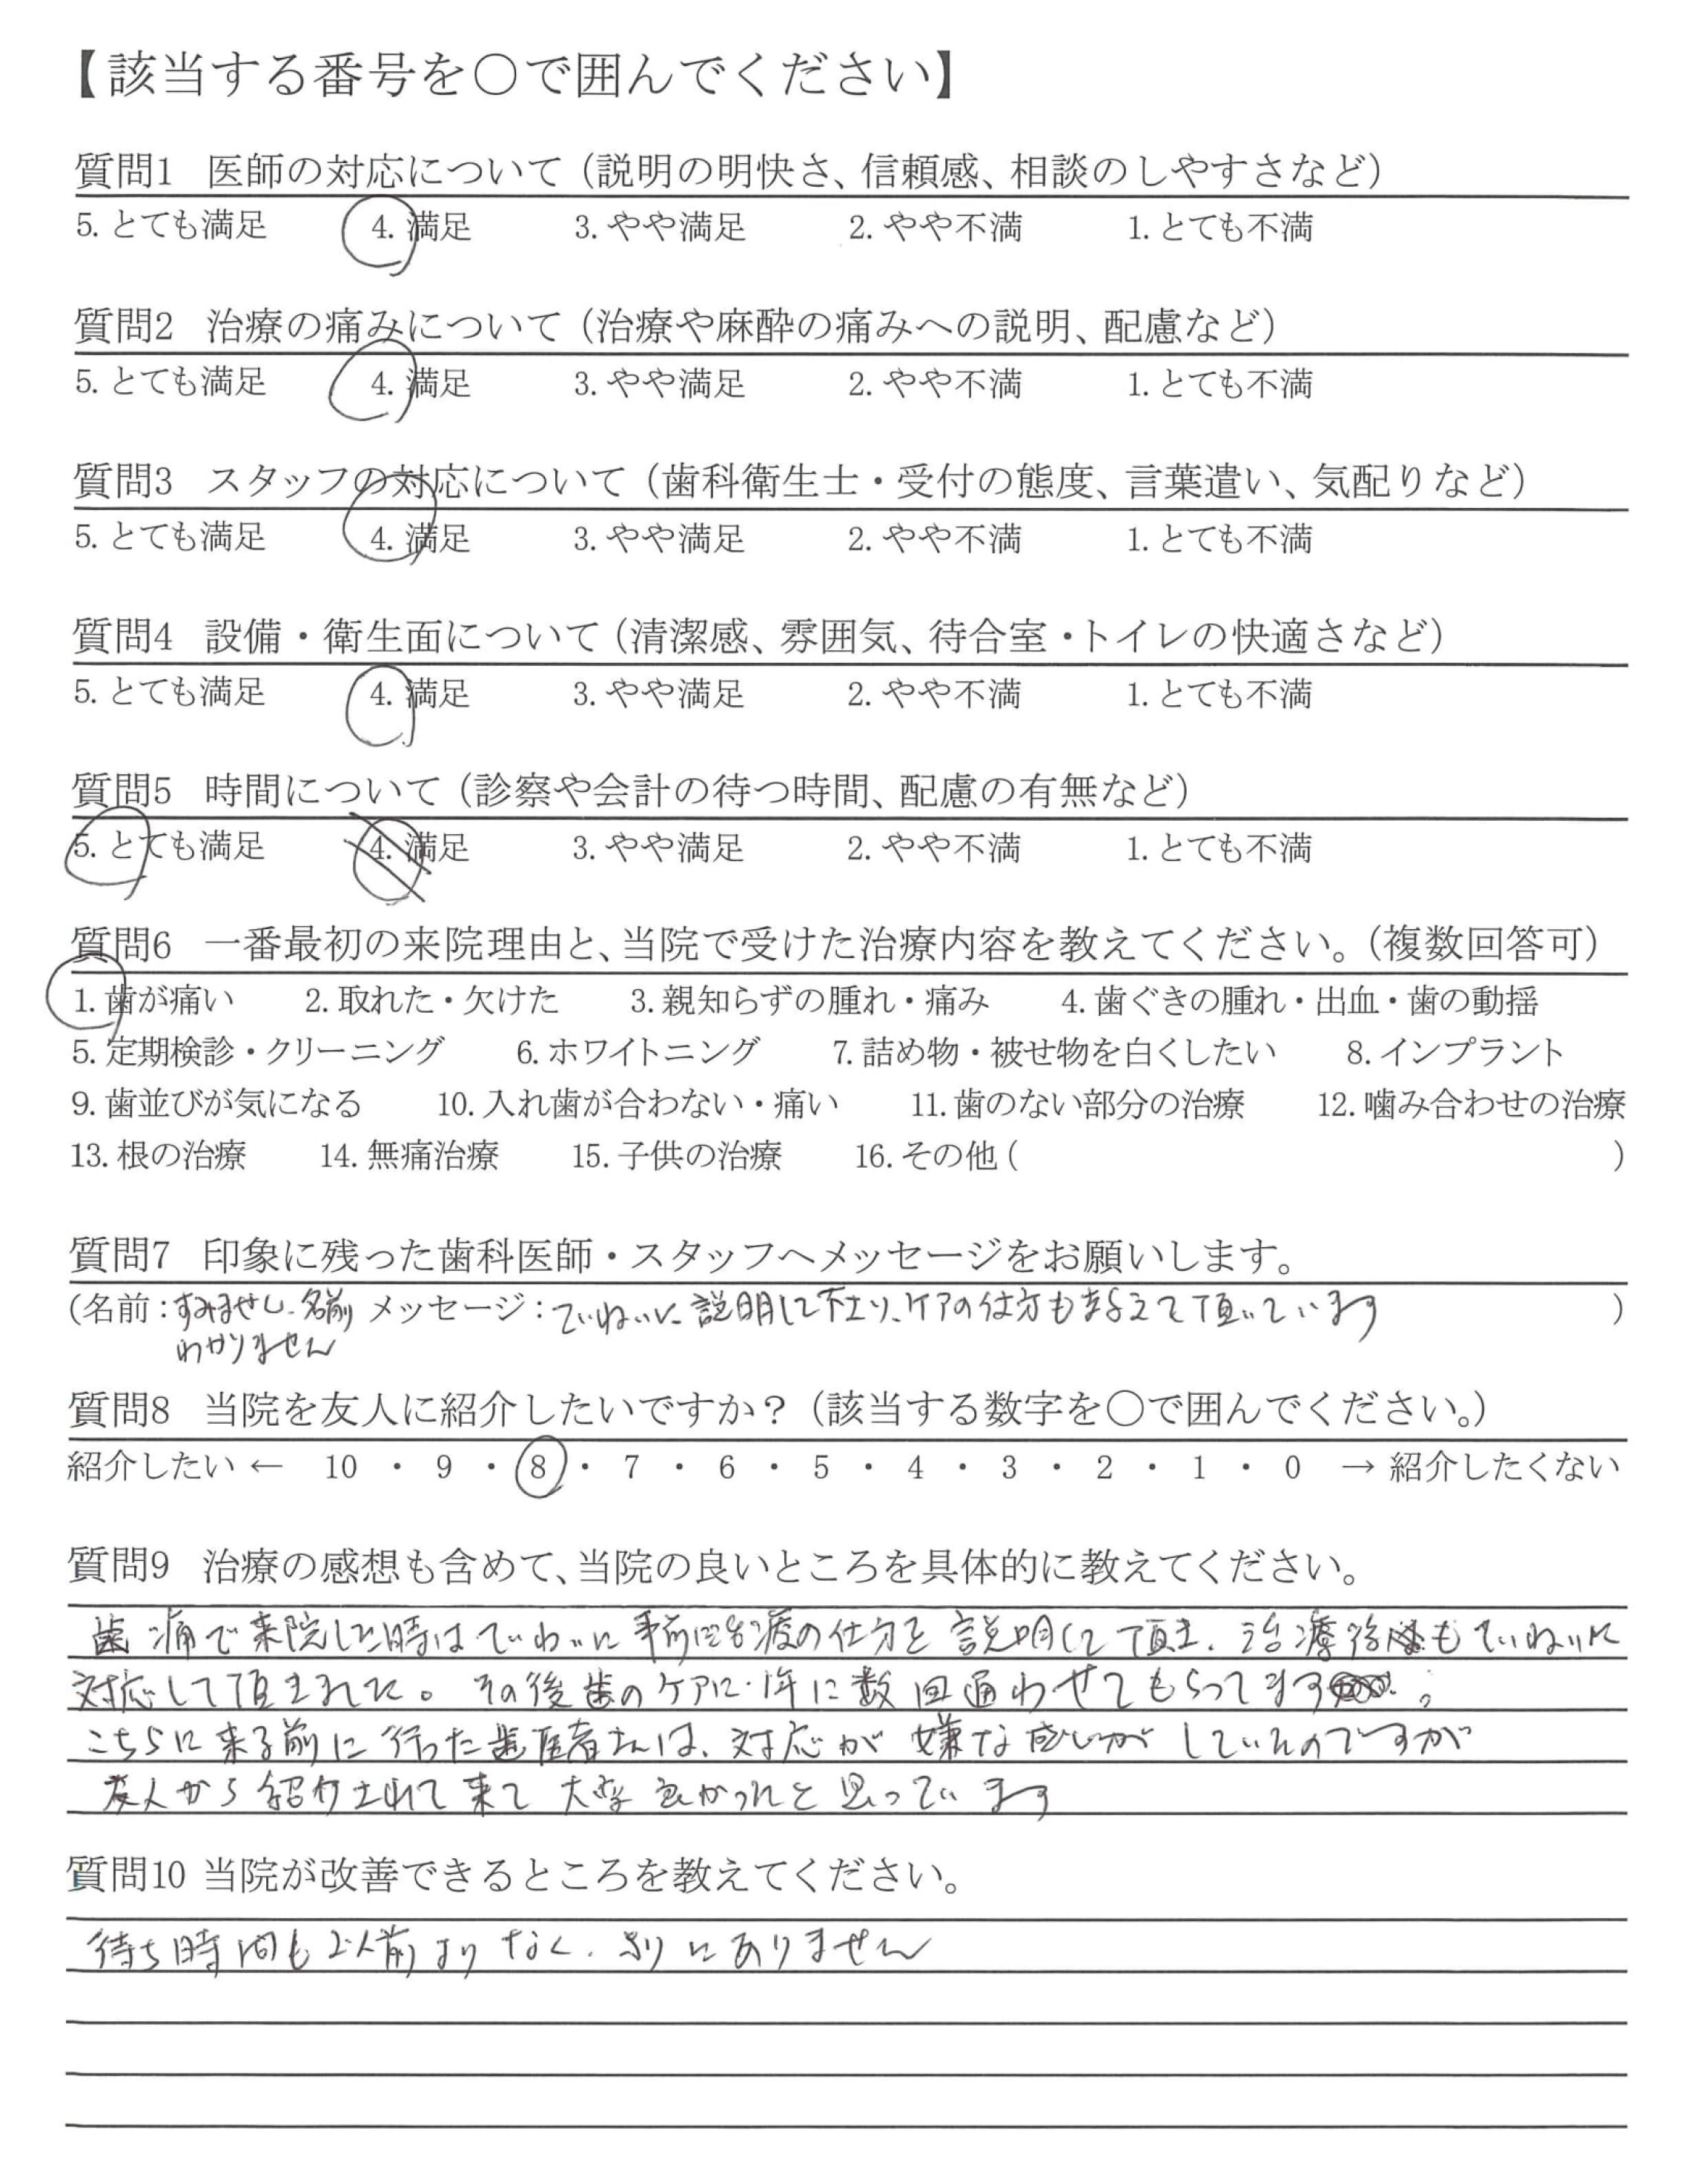 【該当する番号を〇で囲んでください】
質問1 医師の対応について（説明の明快さ、信頼感、相談のしやすさなど）
5. とても満足 4. 満足 3. やや満足 2. やや不満 1. とても不満
質問2 治療の痛みについて（治療や麻酔の痛みへの説明、配慮など）
5. とても満足 4. 満足 3. やや満足 2. やや不満 1. とても不満
質問3 スタッフの対応について（歯科衛生士・受付の態度、言葉遣い、気配りなど）
5. とても満足 4. 満足 3. やや満足 2. やや不満 1. とても不満
質問4 設備・衛生面について（清潔感、雰囲気、待合室・トイレの快適さなど）
5. とても満足 4. 満足 3. やや満足 2. やや不満 1. とても不満
質問5 時間について（診察や会計の待つ時間、配慮の有無など）
5. とても満足 4. 満足 3. やや満足 2. やや不満 1. とても不満
質問6 一番最初の来院理由と、当院で受けた治療内容を教えてください。（複数回答可）
1. 歯が痛い 2. 取れた・欠けた 3. 親知らずの腫れ・痛み 4. 歯ぐきの腫れ・出血・歯の動揺
5. 定期検診・クリーニング 6. ホワイトニング 7. 詰め物・被せ物を白くしたい 8. インプラント
9. 歯並びが気になる 10. 入れ歯が合わない・痛い 11. 歯のない部分の治療 12. 噛み合わせの治療
13. 根の治療 14. 無痛治療 15. 子供の治療 16. その他（ ）
質問7 印象に残った歯科医師・スタッフへメッセージをお願いします。
（名前：すみません、名前 メッセージ：ていねいに説明して下さり、ケアの仕方も教えて頂いています ）
わかりません
質問8 当院を友人に紹介したいですか？（該当する数字を〇で囲んでください。）
紹介したい ← 10 ・ 9 ・ 8 ・ 7 ・ 6 ・ 5 ・ 4 ・ 3 ・ 2 ・ 1 ・ 0 → 紹介したくない
質問9 治療の感想も含めて、当院の良いところを具体的に教えてください。
歯痛で来院した時はていねいに事前に治療の仕方を説明して頂き、治療後もていねいに
対応して頂きました。その後歯のケアに1年に数回通わせてもらってます。
こちらに来る前に行った歯医者さんは、対応が嫌な感じがしていたのですが
友人から紹介されて来て大変良かったと思っています
質問10 当院が改善できるところを教えてください。
待ち時間も以前よりなく、ありません